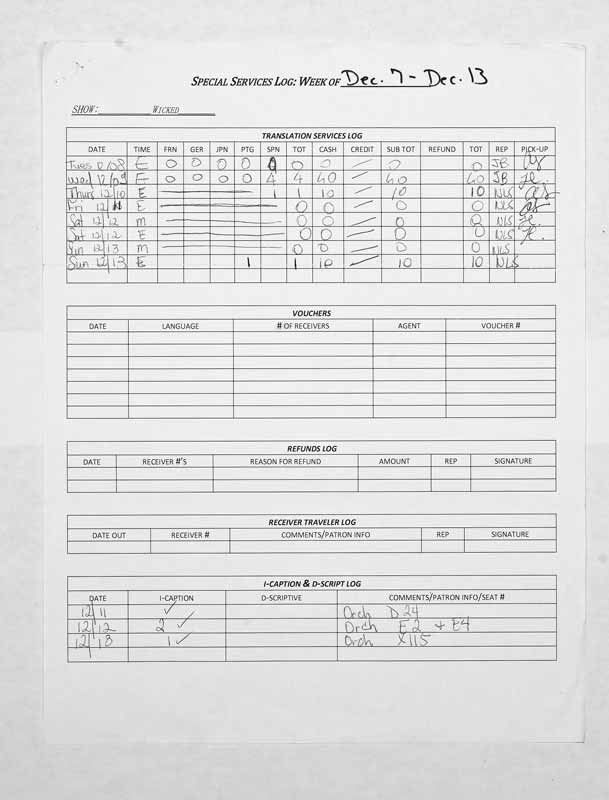 SPECIAL SERVICES LOG: WEEK OF Dec. 7 - Dec. 13
SHOW: WICKED
TRANSLATION SERVICES LOG
DATE TIME FRN GER JPN PTG SPN TOT CASH CREDIT SUB TOT REFUND TOT REP PICK-UP
Tues 12/08 E 0 0 0 0 0 0 0 0 0 JB
Wed 12/09 E 0 0 0 0 4 4 40 40 40 JB
Thurs 12/10 E 1 1 10 10 10 NLS
Fri 12/11 E 0 0 0 0 NLS
Sat 12/12 m 0 0 0 0 NLS
Sat 12/12 E 0 0 0 0 NLS
Sun 12/13 m 0 0 0 0 NLS
Sun 12/13 E 1 1 10 10 10 NLS
VOUCHERS
DATE LANGUAGE # OF RECEIVERS AGENT VOUCHER #
REFUNDS LOG
DATE RECEIVER #'S REASON FOR REFUND AMOUNT REP SIGNATURE
RECEIVER TRAVELER LOG
DATE OUT RECEIVER # COMMENTS/PATRON INFO REP SIGNATURE
I-CAPTION & D-SCRIPT LOG
DATE I-CAPTION D-SCRIPTIVE COMMENTS/PATRON INFO/SEAT #
12/11 ✓ Orch D 24
12/12 2 ✓ Orch E2 + E4
12/13 1 ✓ Orch X115